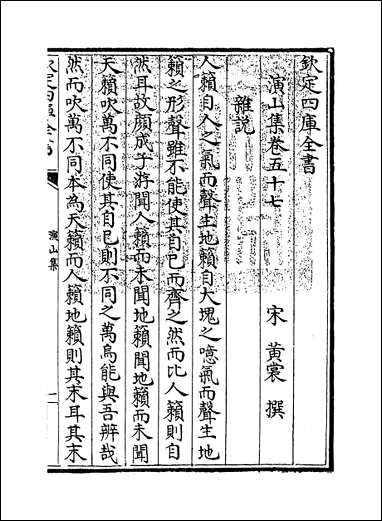 欽定四庫全書
演山集卷五十七
宋 黃裳 撰
雜說
人籟自人之氣而聲生地籟自大塊之噫氣而聲生地
籟之形聲雖不能使其自已而齊之然而比人籟則自
然耳故顔成子游聞人籟而未聞地籟聞地籟而未聞
天籟吹萬不同使其自已則不同之萬烏能與吾辨哉
然而吹萬不同本為天籟而人籟地籟則其末耳其末
欽定四庫全書
演山集
一